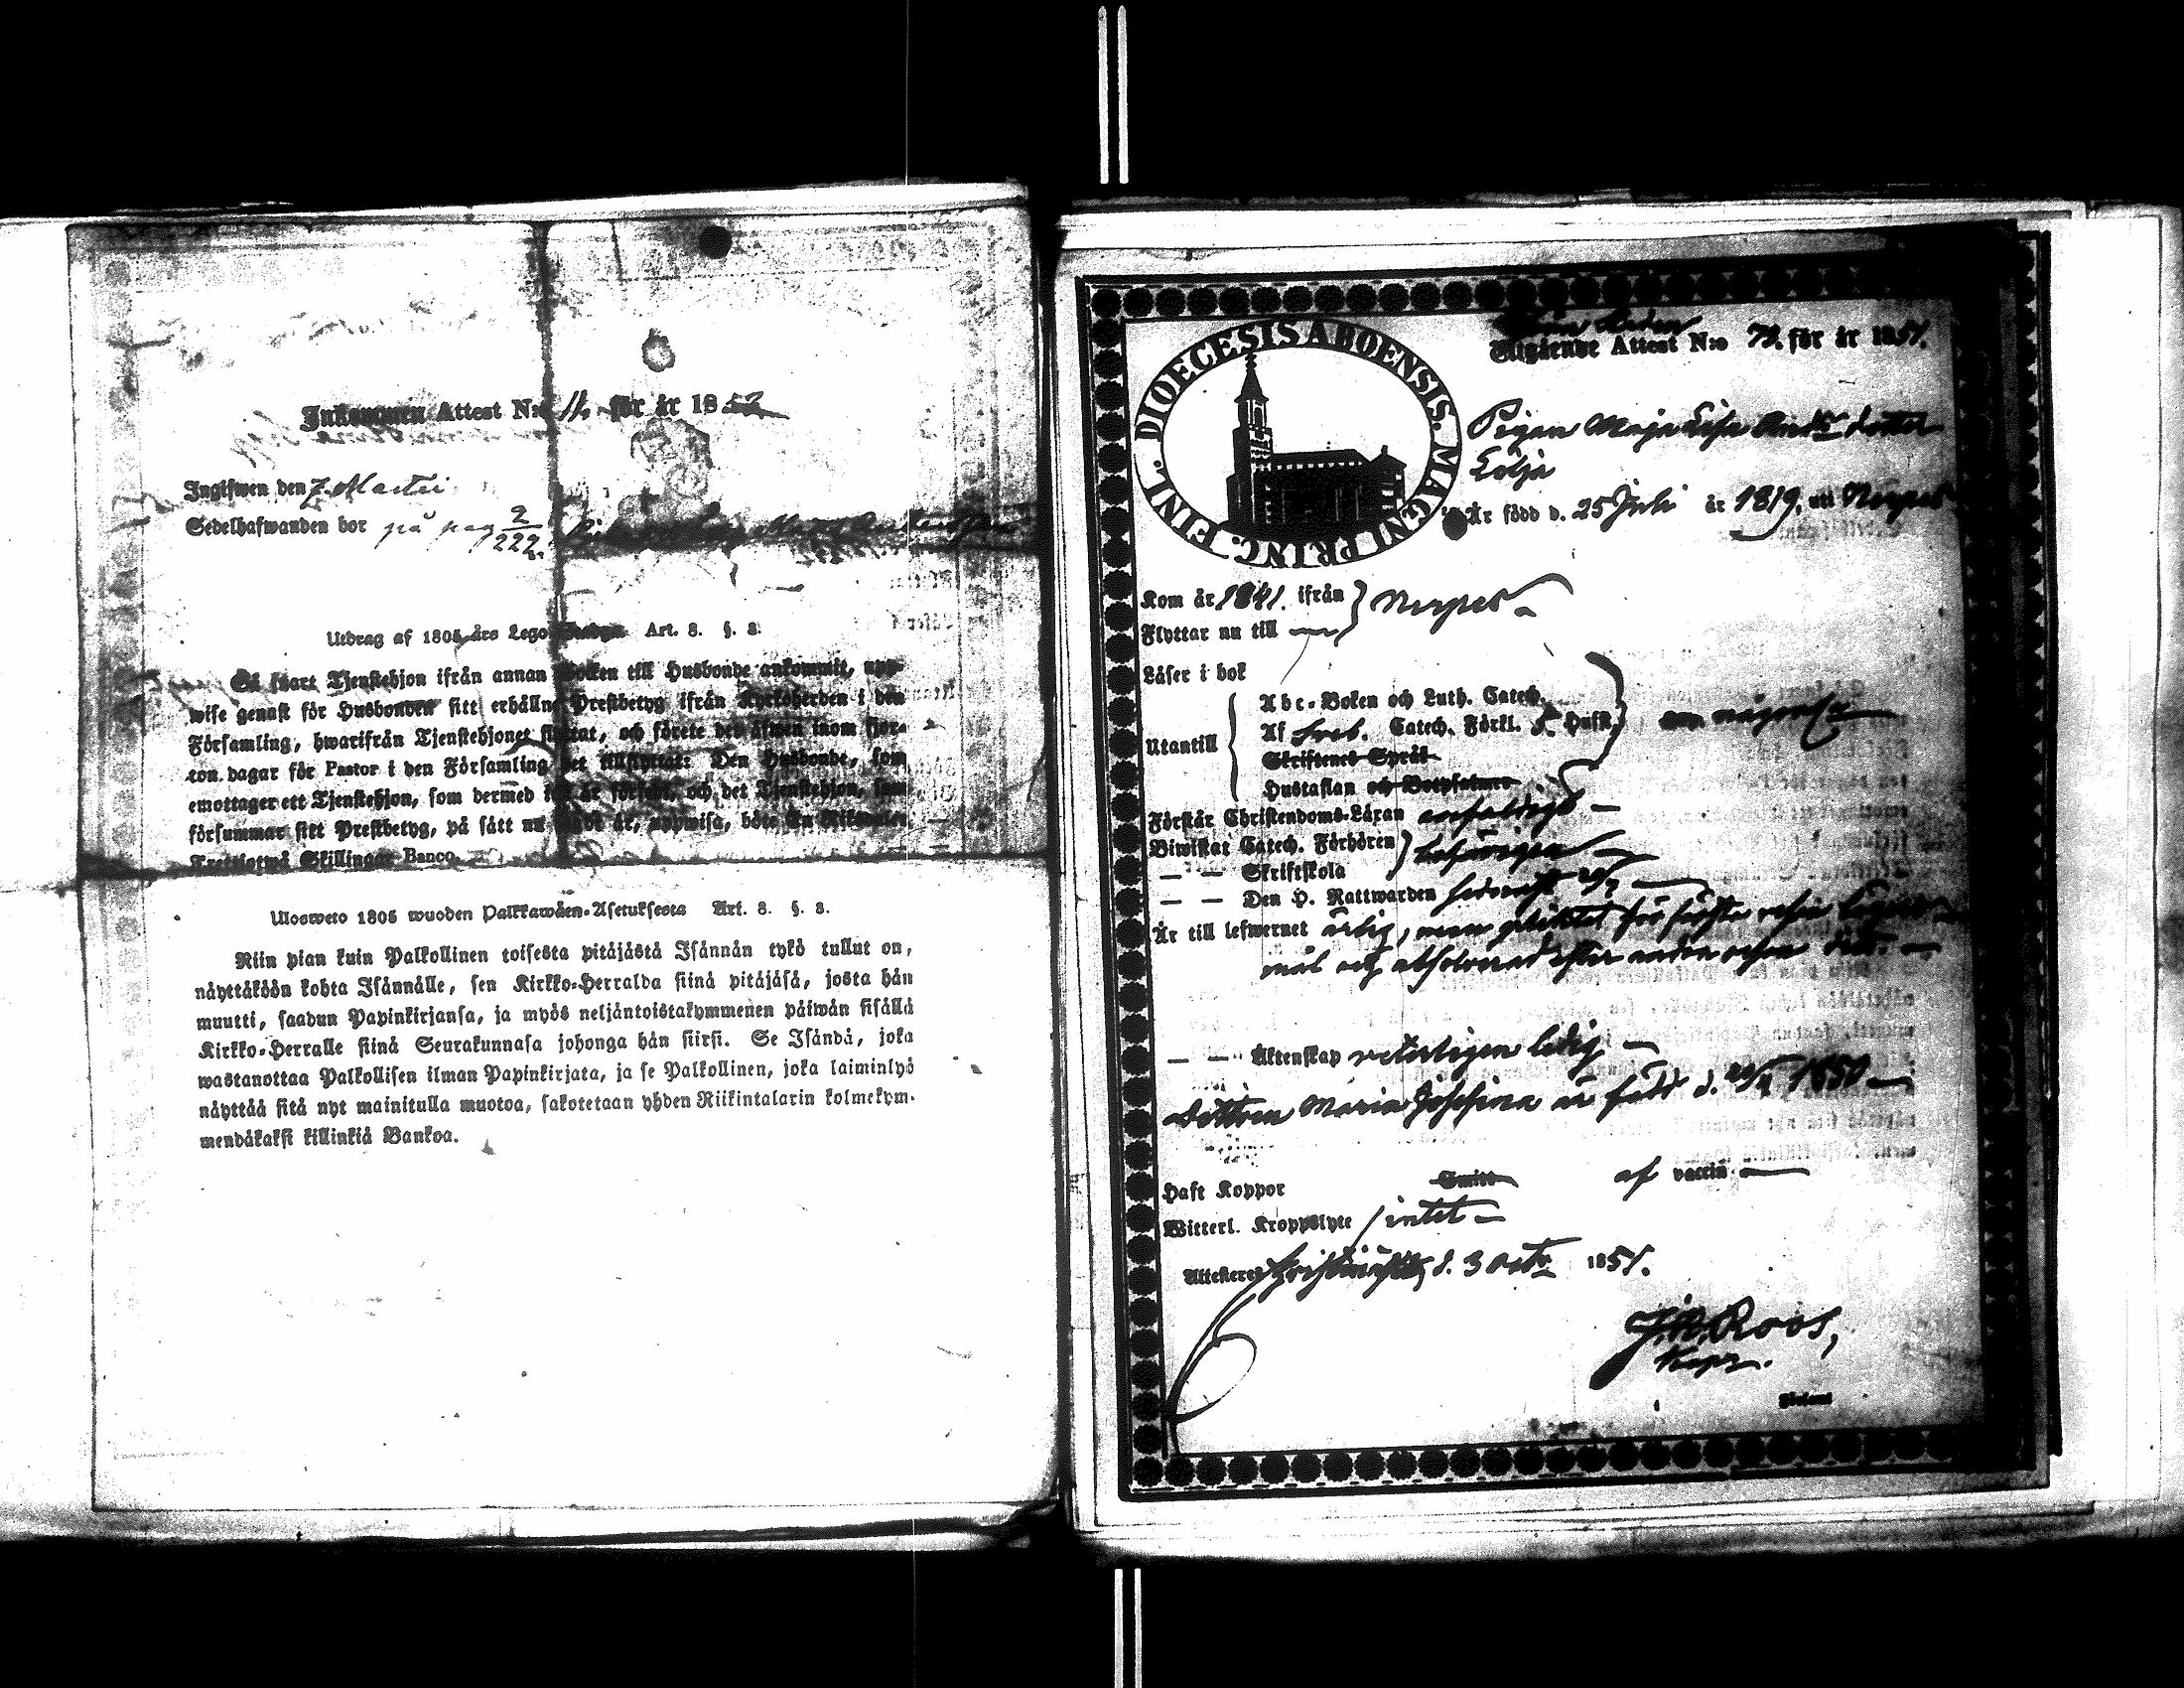 Inkommen Attest N:o 11. för år 1852
Ingifwen den 7 Martii
Sedelhafwanden bor på pag 2/222.
Utdrag af 1805 års Lego-Stadga. Art. 8. §. 3.
Så snart Tjenstehjon ifrån annan Socken till Husbonde ankommit, upp-
wise genast för Husbonden sitt erhållne Prestbetyg ifrån Kyrkoherden i den
Församling, hwarifrån Tjenstehjonet flyttat, och förete det äfwen inom fjor-
ton dagar för Pastor i den Församling det tillflyttat: Den Husbonde, som
emottager ett Tjenstehjon, som dermed ej är försedt, och det Tjenstehjon, som
försummar sitt Prestbetyg, på sätt nu sagdt är, uppwisa, böte En Riksdaler
Trettiotwå Skillingar Banco.
Ulosweto 1805 wuoden Palkkawäen-Asetuksesta Art. 8. §. 3.
Niin pian kuin Palkollinen toisesta pitäjästä Isännän tykö tullut on,
näyttäköön kohta Isännälle, sen Kirkko-Herralda siinä pitäjäsä, josta hän
muutti, saadun Papinkirjansa, ja myös neljäntoistakymmenen päiwän sisällä
Kirkko-Herralle siinä Seurakunnasa johonga hän siirsi. Se Isändä, joka
wastanottaa Palkollisen ilman Papinkirjata, ja se Palkollinen, joka laiminlyö
näyttää sitä nyt mainitulla muotoa, sakotetaan yhden Riikintalarin kolmekym-
mendäkaksi killinkiä Bankoa.
DIOECESIS ABOENSIS. MAGNI PRINC. FINL.
Utgående Attest N:o 79. för år 1851.
Pigan Maja Lisa Andsdotter
Lölja
Är född d. 25 Juli år 1819, uti Nerpes
Kom år 1841. ifrån } Nerpes
Flyttar nu till
Läser i bok
Abc-Boken och Luth. Catech.
Utantill Af Sveb. Catech. Förkl. Husft. någorlunda
Skriftenes Språk
Hustaflan och Botpsalmer
Förstår Christendoms-Läran enfaldigt
Biwistat Catech. Förhören } behörigen
— — Skriftskola
— — Den H. Nattwarden sednast
Är till lefwernet ärlig, men pliktat för första resan lägers-
mål och absolverad efter andra resan dito.
— — Äktenskap veterligen ledig
Dottren Maria Josefina är född d. 1850
Haft Koppor Smitt af vaccin
Witterl. Kroppslyte intet
Attesterar Christinæstad, d. 3 Octr 1851.
J. R. Roos,
Kapn.